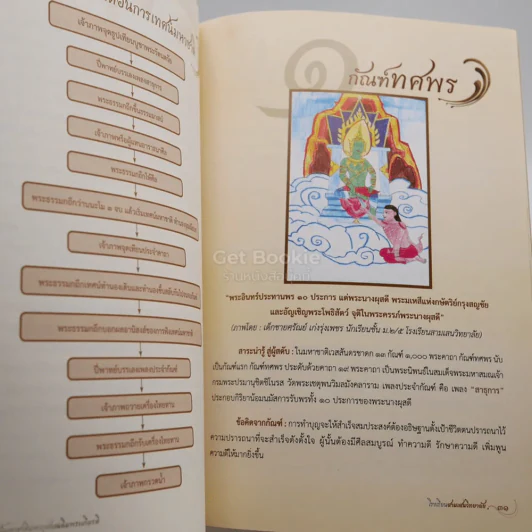 เจ้าภาพจุดธูปเทียนบูชาพระรัตนตรัย
ปี่พาทย์บรรเลงเพลงสาธุการ
พระธรรมกถึกขึ้นธรรมาสน์
พระธรรมกถึกให้ศีล
เจ้าภาพจุดเทียนประจำคาถา
พระธรรมกถึกบอกผลอานิสงส์ของการฟังเทศน์มหาชาติ
ปี่พาทย์บรรเลงเพลงประจำกัณฑ์
เจ้าภาพถวายเครื่องไทยทาน
พระธรรมกถึกรับเครื่องไทยทาน
เจ้าภาพกรวดน้ำ
๑
กัณฑ์ทศพร
Get Bookie
ร้านหนังสือเก็ท
"พระอินทร์ประทานพร ๑๐ ประการ แด่พระนางผุสดี พระมเหสีแห่งกษัตริย์กรุงสญชัย
และอัญเชิญพระโพธิสัตว์ จุติในพระครรภ์พระนางผุสดี"
(ภาพโดย : เด็กชายศรัณย์ เก่งรุ่งเพชร นักเรียนชั้น ม.๒/๕ โรงเรียนสามเสนวิทยาลัย)
สาระน่ารู้ สู่ผู้สดับ : ในมหาชาติเวสสันดรชาดก ๑๓ กัณฑ์ ๑,๐๐๐ พระคาถา กัณฑ์ทศพร นับ
เป็นกัณฑ์แรก กัณฑ์ทศพร ประดับด้วยคาถา ๑๙ พระคาถา เป็นพระนิพนธ์ในสมเด็จพระมหาสมณเจ้า
กรมพระปรมานุชิตชิโนรส วัดพระเชตุพนวิมลมังคลาราม เพลงประจำกัณฑ์ คือ เพลง "สาธุการ"
ประกอบกิริยาน้อมนมัสการรับพรทั้ง ๑๐ ประการของพระนางผุสดี
ข้อคิดจากกัณฑ์ : การทำบุญจะให้สำเร็จสมประสงค์ต้องอธิษฐานตั้งเป้าชีวิตตนปรารถนาไว้
ความปรารถนาที่จะสำเร็จดังตั้งใจ ผู้นั้นต้องมีศีลสมบูรณ์ ทำความดี รักษาความดี เพิ่มพูน
ความดีให้มากยิ่งขึ้น
๓๑